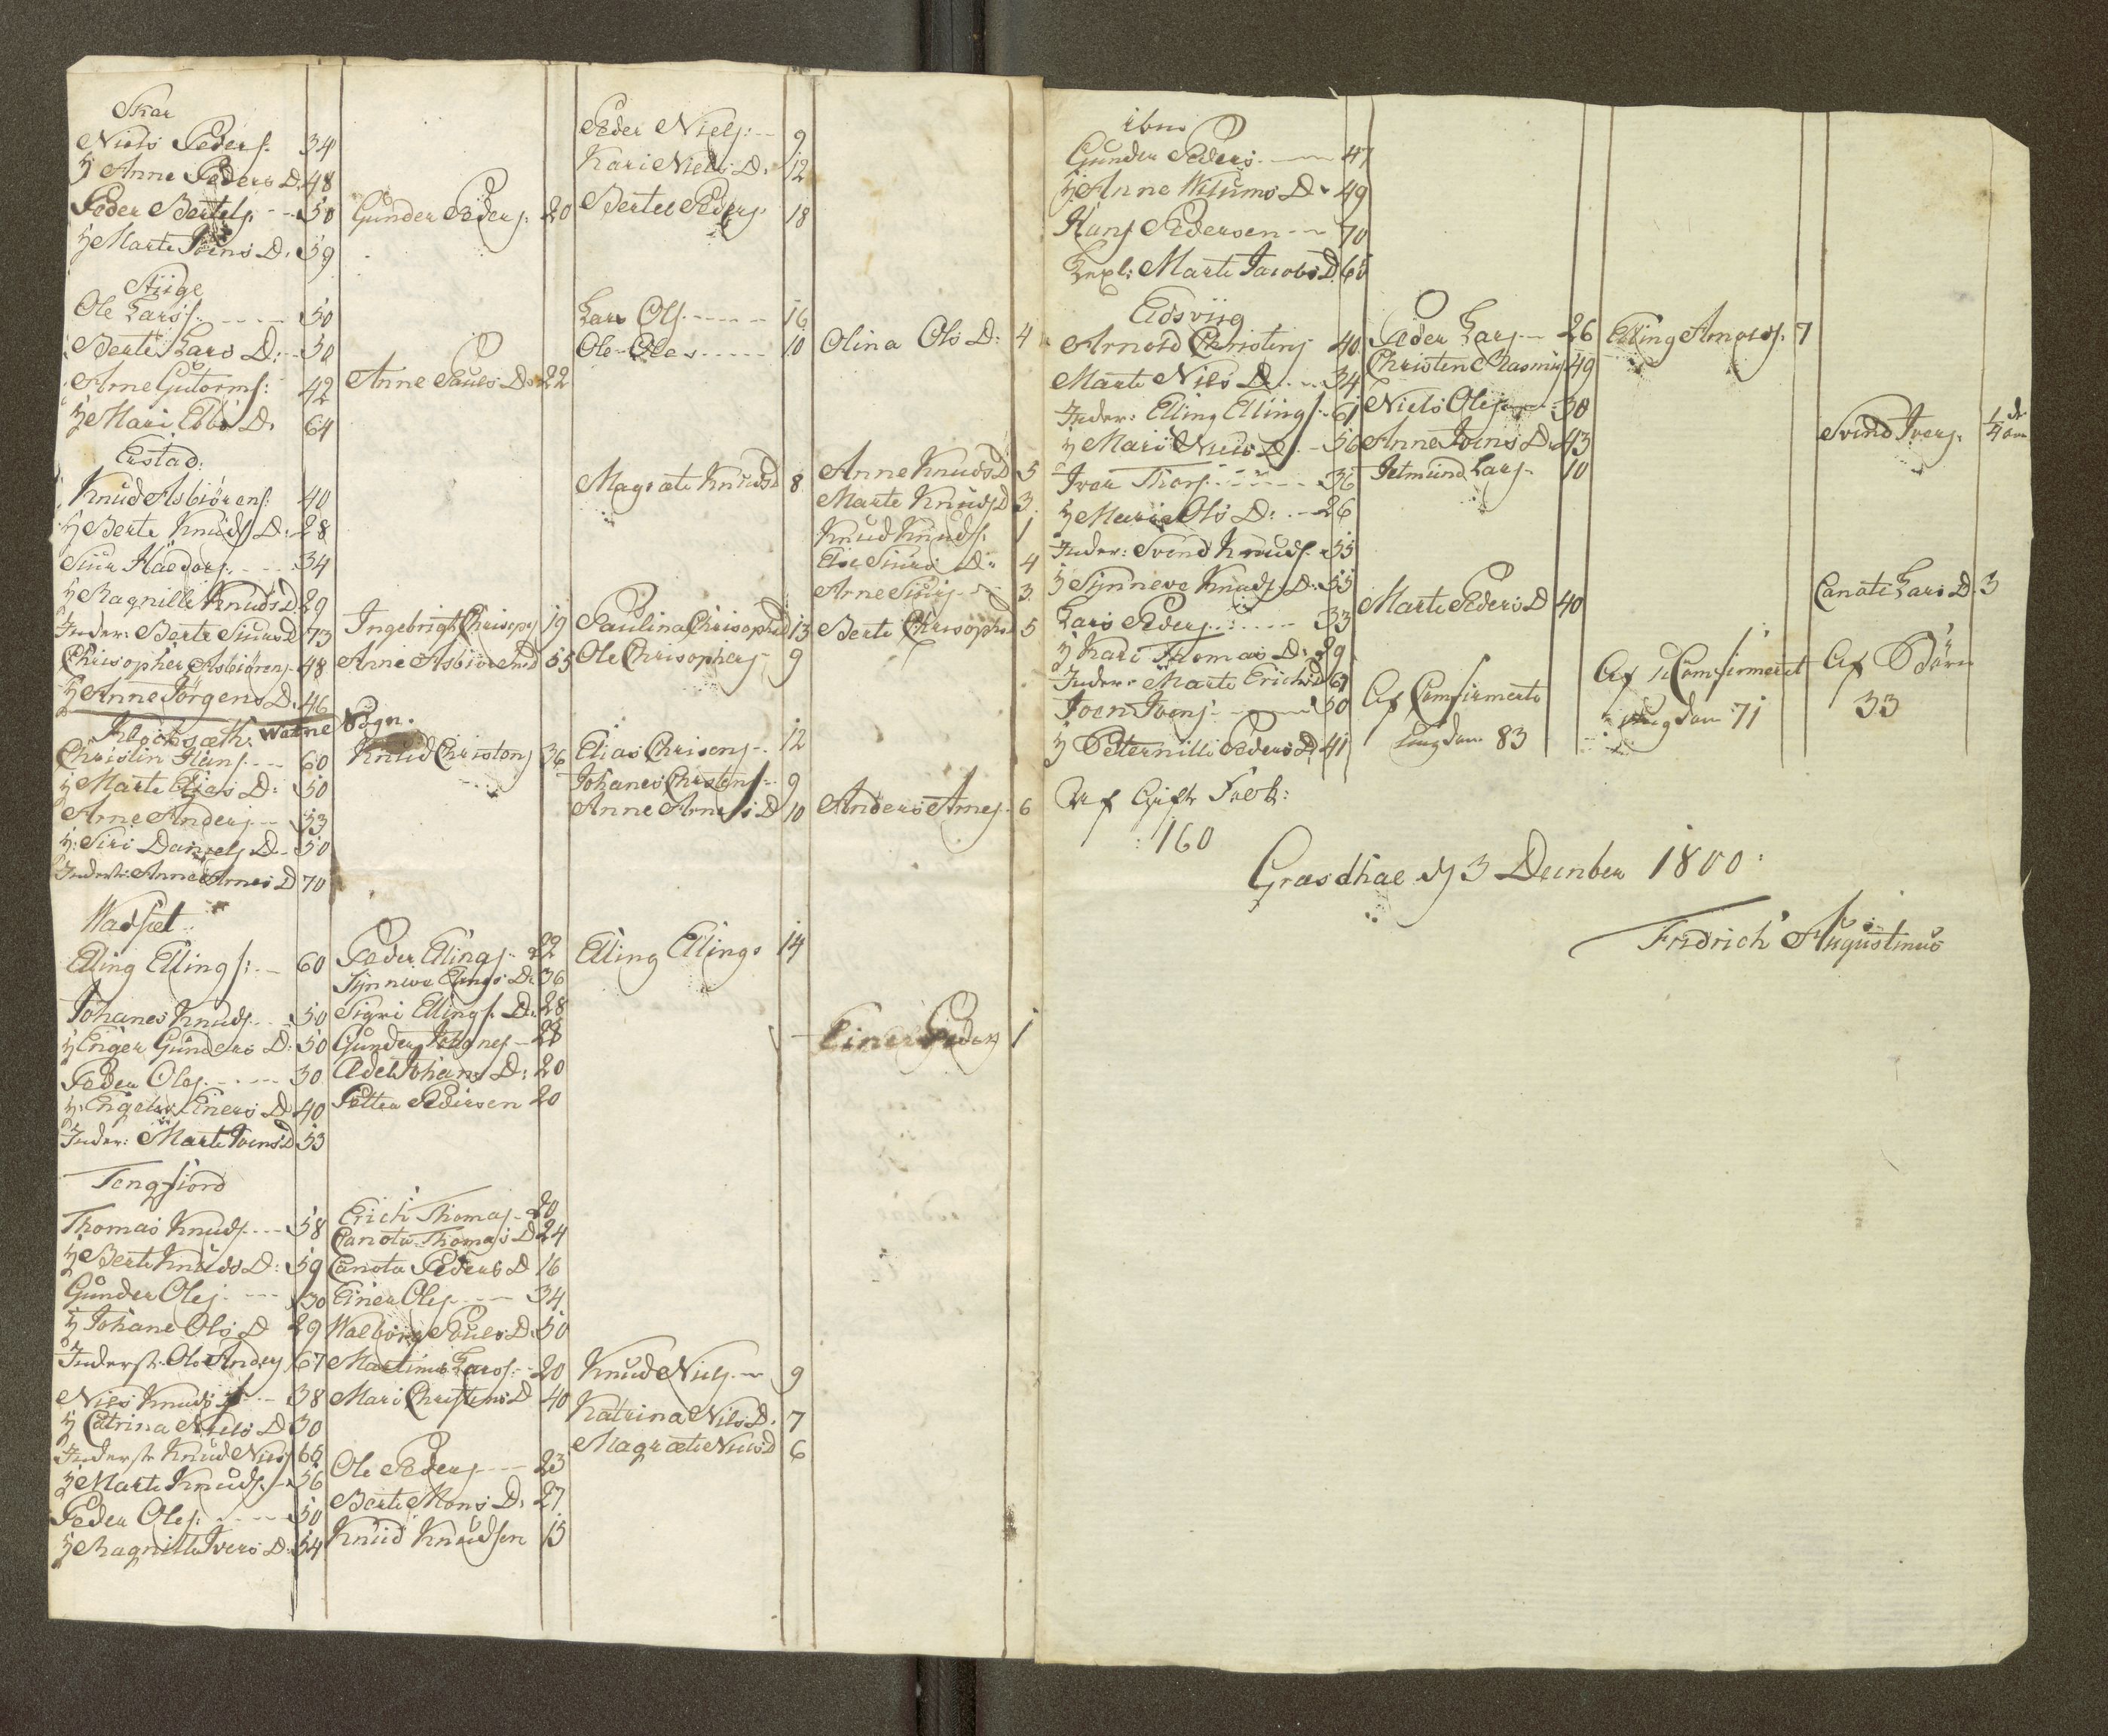 Skar
Niels Peders: 34
h Anne Peders D. 48
Peder Bertels. 50
h Marte Joens D. 59
Gunder Peders: 20
Peder Niels: 9
Kari Niels D. 12
Bertel Peders 18
Stiige
Ole Lars: 50
Berte Lars D: 50
Arne Gutorms: 42
h Mari Ebbs D. 64
Anne Pauls D. 22
Lars Ols 16
Ole Oles 10
Olina Ols D: 4
Erstad:
Knud Asbiørens: 40
h Berte Knuds D: 28
Siur Haldors. 34
h Ragnille Knuds D. 29
Inder: Berte Siurs D 73
Christopher Asbiørens 48
h Anne Jørgens D. 46
Ingebrigt Chrisops 19
Anne Asbiørens D 55
Magrete Knuds D 8
Paulina Chrisophs D 13
Ole Chrisophers 9
Anne Knuds D 5
Marte Knuds D 3.
Knud Knuds. 1
Else Siurs D: 4
Arne Siurs 3.
Berte Chrisophs D 5
Watne Sogn.
Christin Hans 60
h Marte Elias D: 50
Arne Anders 53
h: Siri Daniels D. 50
Inderst: Anne Arnes D 70
Knud Christens 36
Elias Chrisens 12
Johanes Christens 9
Anne Arnes D 10
Anders Arnes. 6
Wadsæt
Elling Ellings: 60
Johanes Knuds. 50
h Inger Gunders D: 50
Peder Oles. 30
h: Engeler Einers D 40
Inder: Marte Joens D 53
Peder Ellings 22
Synneve Elings D. 36
Sigri Ellings. D. 28
Gunder Johanes 28
Adel Johans D: 20
Petter Pedersen 20
Elling Ellings 14
Einer Peders 1
Tengfiord
Thomas Knuds. 58
h Berte Knuds D: 59
Gunder Oles. 30
h Johane Ols D 29
Inderst. Ole Anders 67
Niels Knuds 38
h Catrina Niels D 30
Inderst Knud Niels 65
h Marte Knuds. 56
Peder Oles: 50
h Ragnille Ivers D: 54
Erich Thomas 20
Canota Thomas D 24
Canota Peders D 16
Einer Oles 34
Walborg Pouls D. 50
Martinus Lars: 20
Mari Christens D 40
Ole Peders 23
Berte Mons D. 27
Knud Knudsen 15
Knud Niels 9
Katrina Niels D. 7
Magrete Niels D 6
ibm
Gunder Peders. 47
h. Anne Wilums D. 49
Hans Pedersen 70
Marte Jacobs D. 65
Eidsviig
Arnold Christens 40.
Marte Niels D. 34
Inder: Elling Ellings. 61
h Mari Niels D. 56
Iver Thors. 36
h Marie Ols D: 26
Inder: Svend Knuds. 55
h Synneve Knuds D: 55
Lars Peders. 33
h Kari Thomas D: 29
Inder: Marte Erichs D 69
Joen Ivers. 50
h Peternille Peders D. 41
Peder Lars 26
Christen Rasmus 49
Niels Oles 30
Anne Joens D. 43
Jetmund Lars. 10
Marte Peders D 40
Elling Arnolds. 7
Svend Ivers. 1/4
Canate Lars D. 3
Af Gifte Folk:
:160
Af Confirmerte
Ungdom 83
Af U Confirmeret
Ungdom 71
Af Børn
33
Grasdhal d 3 December 1800:
Fridrich Augustinus